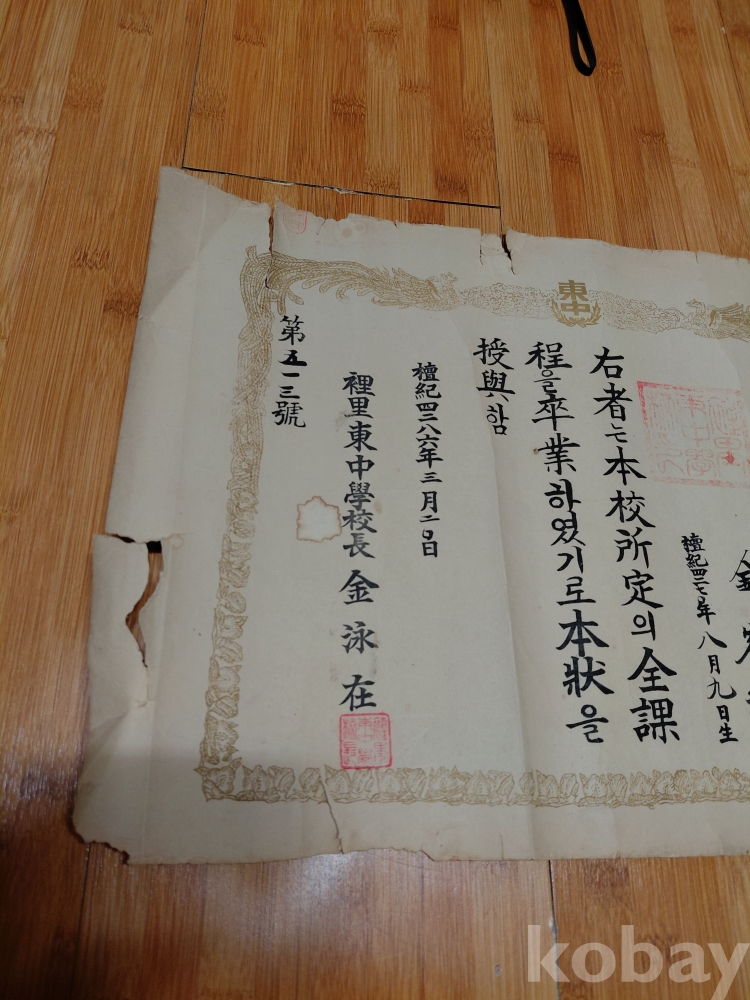 東中
檀紀 八月九日生
右者는本校所定의全課
程을卒業하였기로本狀을
授與함
檀紀四二八六年三月二〇日
裡里東中學校長 金泳在
第五一三號
kobay